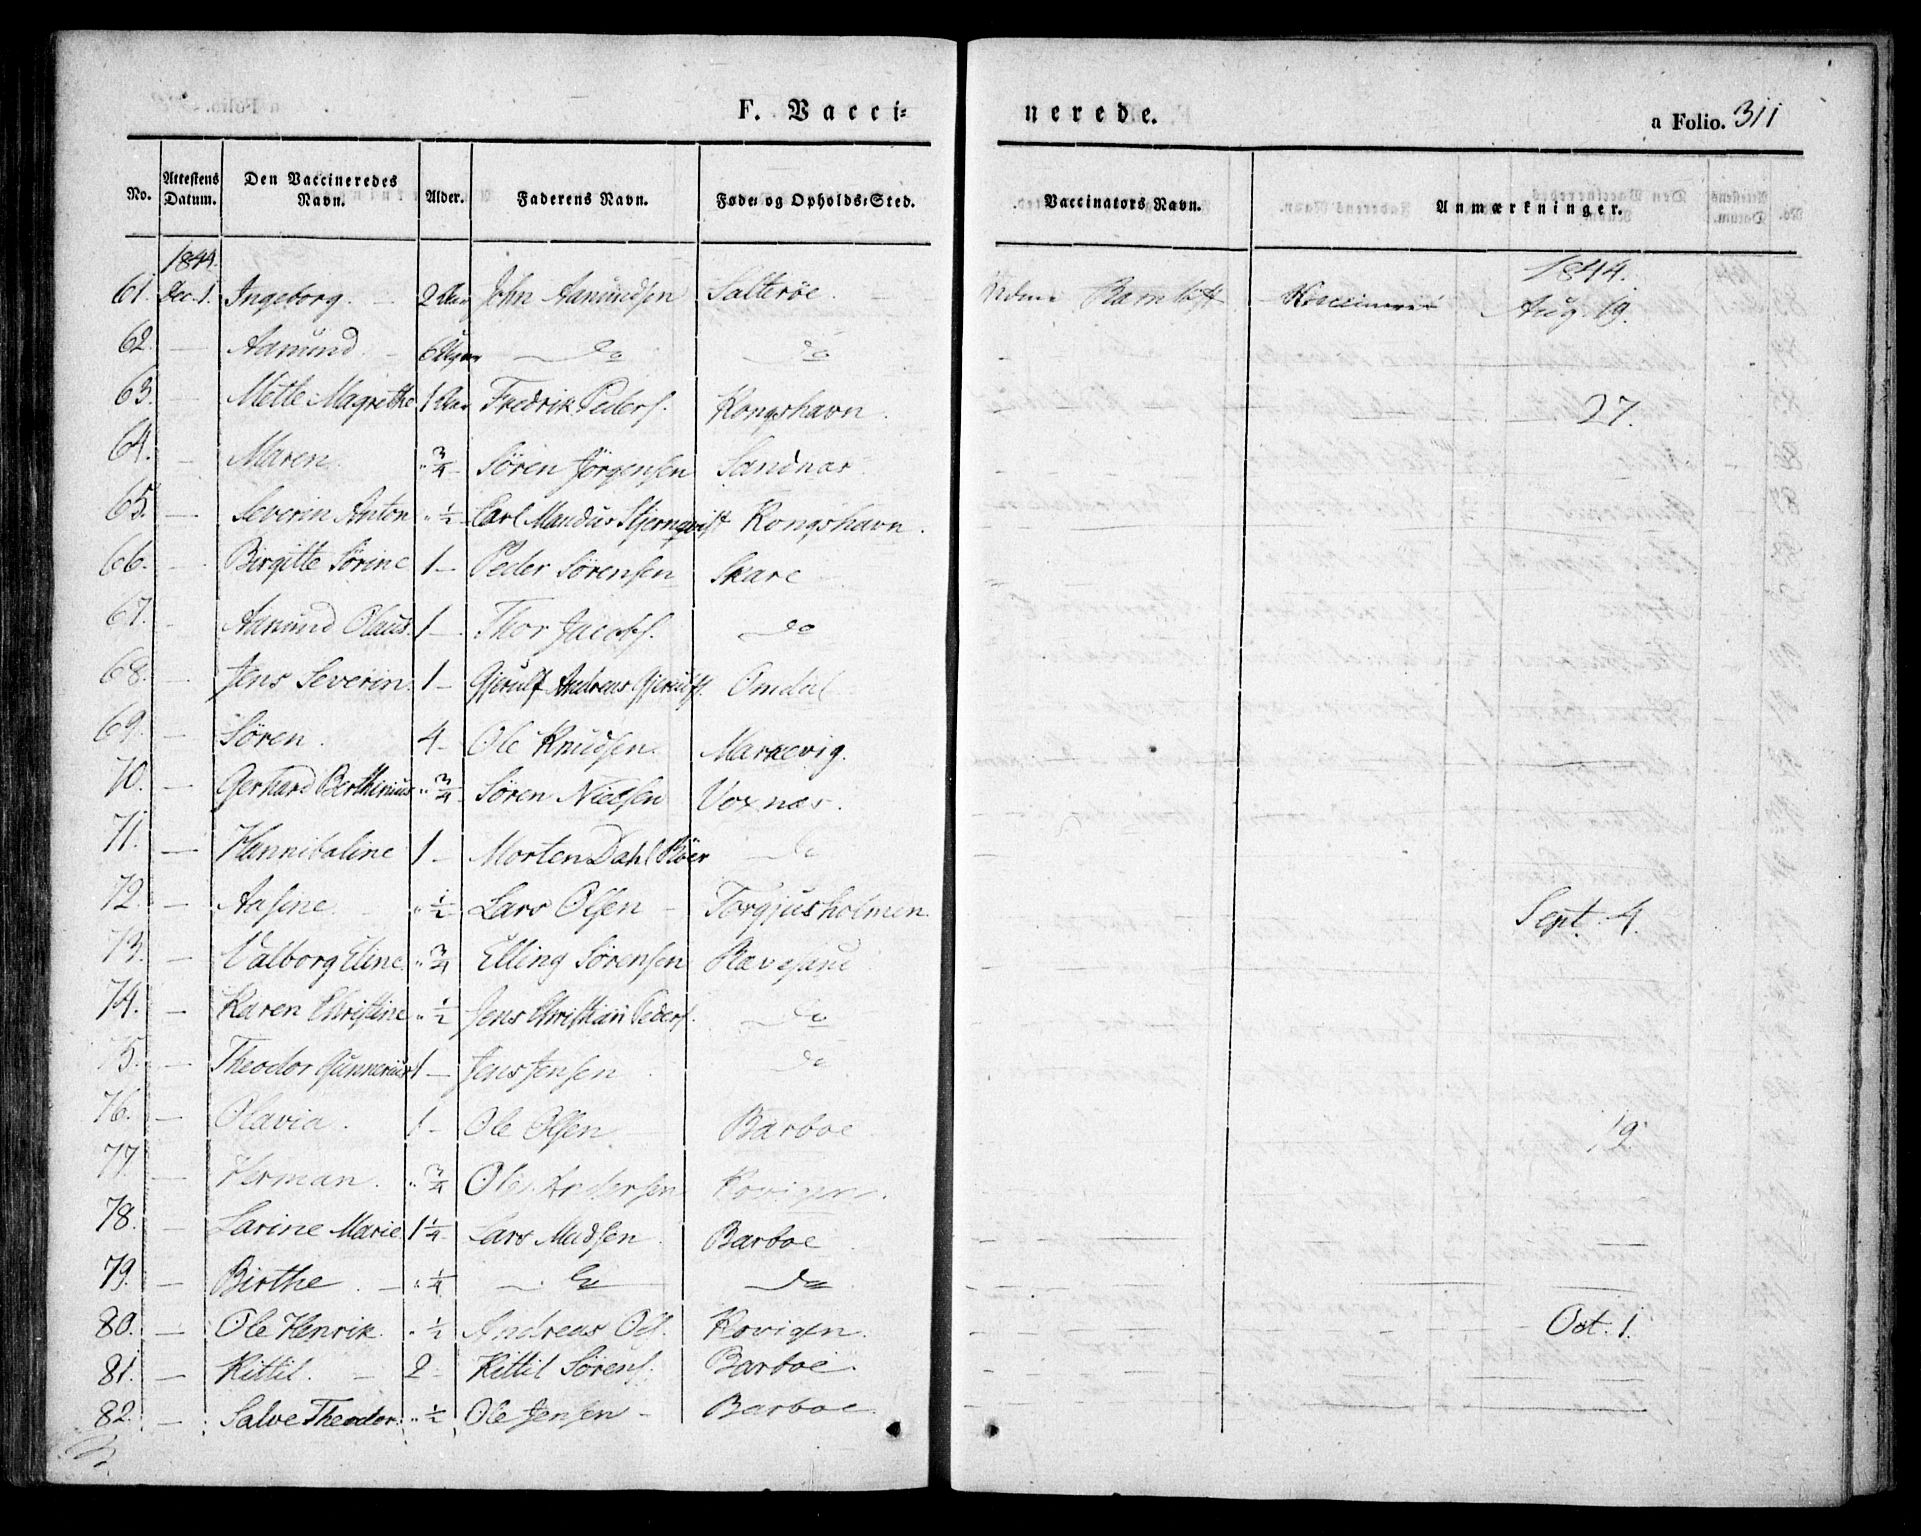 F. Vacci=
nerede.
a Folio. 311
No. Attestens Datum. Den Vaccineredes Navn. Alder. Faderens Navn. Føde= og Opholds=Sted. Vaccinators Navn. Anmærkninger.
1844. 1844.
61. Dec. 1. Ingeborg. 2 Aar John Aanundsen Salterøe. Aug. 19.
62. — Aanund — do do
63. — Mette Magrethe 1 Aar Fredrik Peders. Kongshavn. 27.
64. — Maren " 3/4 – Søren Jørgensen Sandnæs
65. — Severin Anton " 1/2 – Carl Mandus Stjernqvist Kongshavn.
66. — Birgitte Sørine 1 – Peder Sørensen Skare
67. — Aanund Olaus. 1 – Thor Jacobs. do
68. — Jens Severin. 1 – Gjerulf Andreas Gjerulfs. Omdal
69. — Søren. 4 – Ole Knudsen. Markevig.
70. — Gerhard Berthinius " 3/4 – Søren Nielsen Voxnæs.
71. — Hannibaline 1 – Morten Dahl Böer do
72. — Aasene " 1/2 Lars Olsen – Torgjusholmen Sept. 4.
73. — Valborg Eline " 3/4 Elling Sørensen Rævesand
74. — Karen Christine " 1/2 Jens Christian Peders. do
75. — Theodor Gunnerius 1 – Jens Jensen do
76. — Olavia. 1 – Ole Olsen Barboe 12
77. — Herman. " 3/4 Ole Andersen Kovigen.
78. — Larine Marie 1 1/4 Lars Madsen Barboe
79. — Birthe. – " 1/4 do do
80. — Ole Henrik. " 1/2 Andreas Ols. Kovigen. Oct. 1.
81. — Kittil. – 2 – Kittil Sørens. Barboe.
82. — Salve Theodor. " 1/2 Ole Jensen – Barboe